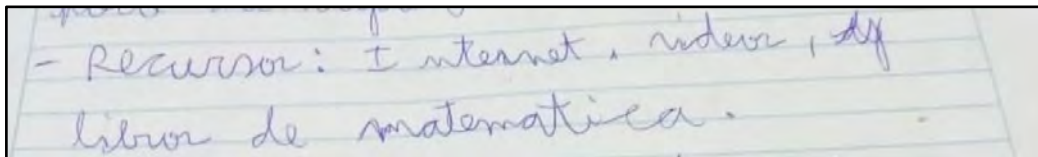 - Recursos: Internet, videos,
libros de matematica.